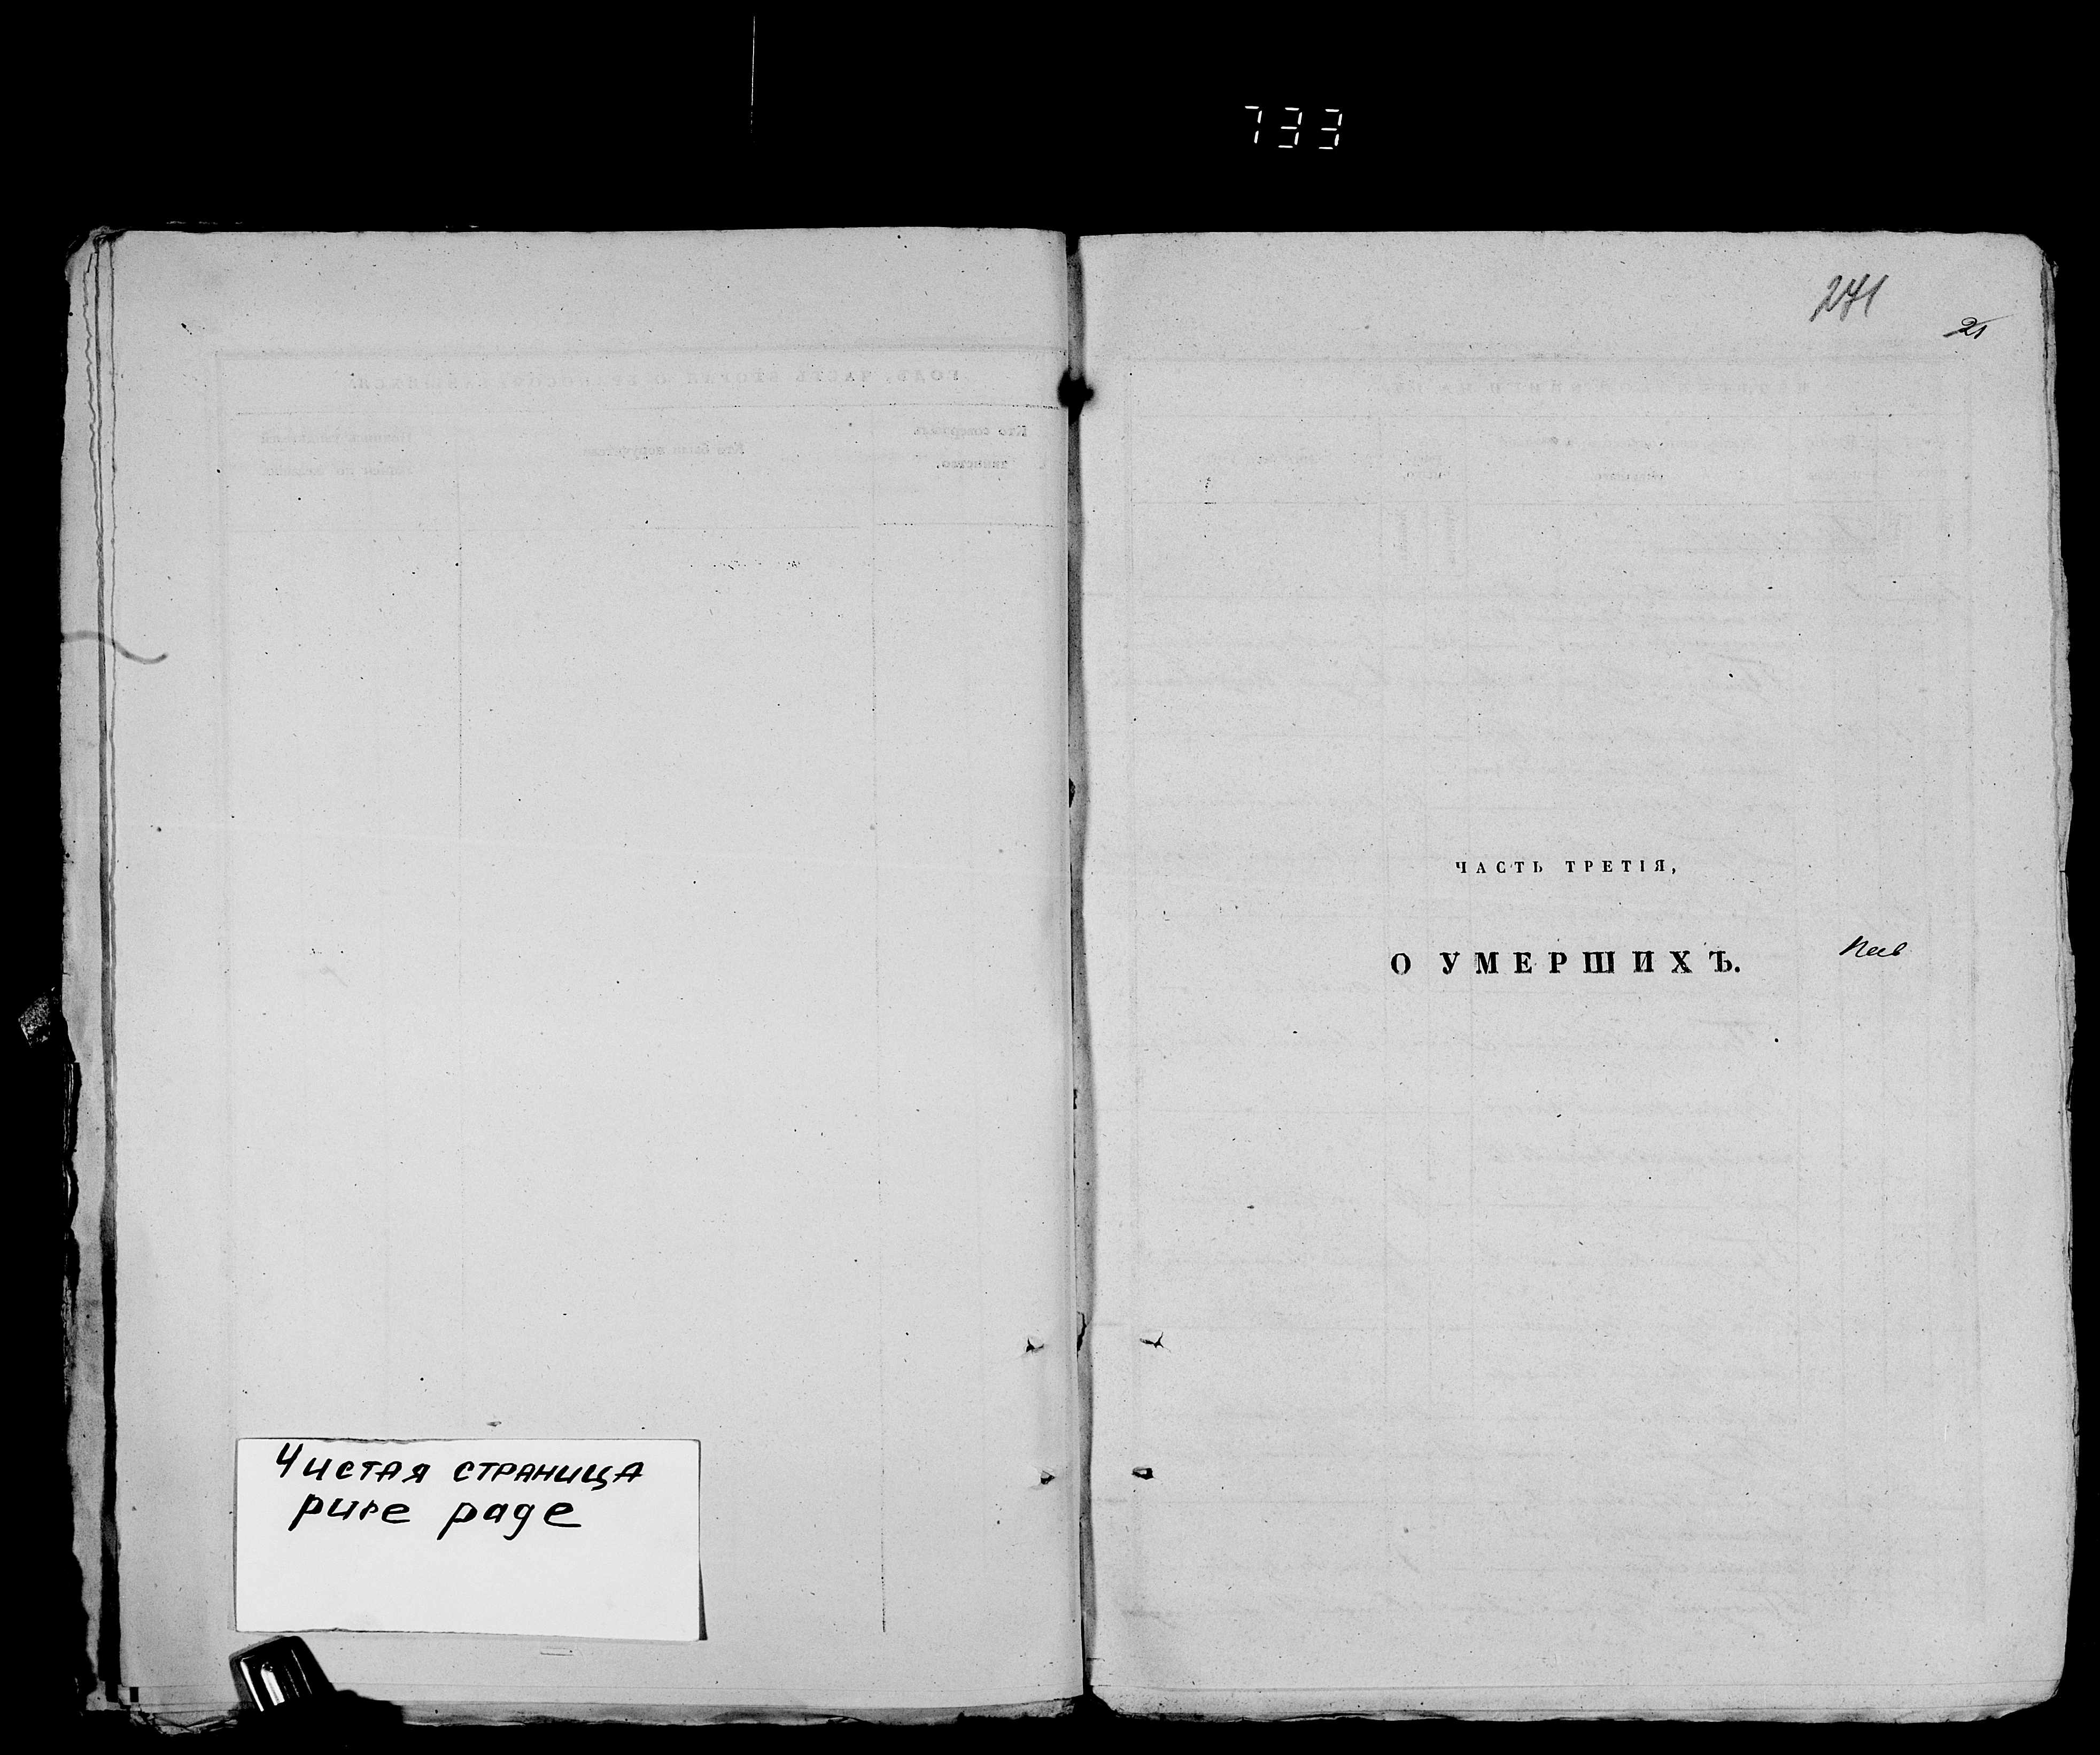 733
271
21
ЧАСТЬ ТРЕТІЯ,
О УМЕРШИХЪ.
Чистая страница
pure page